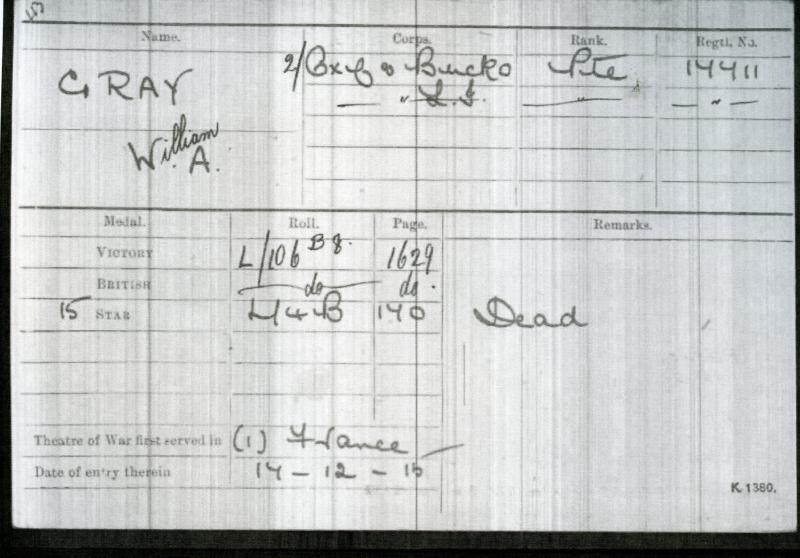 Name. Corps. Rank. Regtl. No.
GRAY 2/Oxf & Bucks Pte 14411
— " — L.I. — " — — " —
William
A.
Medal. Roll. Page. Remarks.
VICTORY L/106 B8. 1629
BRITISH do do.
15 STAR L/4B 140 Dead
Theatre of War first served in (1) France
Date of entry therein 14 - 12 - 15
K. 1380.